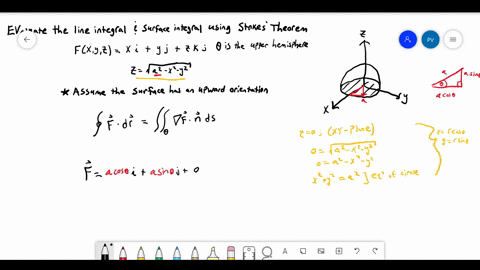 Evaluate the line integral & surface integral using Stokes' Theorem
F(x,y,z) = x i + y j + z k j θ is the upper hemisphere
z = √a²-x²-y²
* Assume the surface has an upward orientation
∮ F⃗ · dr⃗ = ∬θ ∇F⃗ · n⃗ ds
F⃗ = a cosθ i + a sinθ j + 0
z
x
y
a
a
a sinθ
θ
a cosθ
z=0 ; (XY-Plane)
0 = √a²-x²-y²
0 = a²-x²-y²
x²+y² = a² } eqⁿ of circle
x = r cosθ
y = r sinθ
PV
A